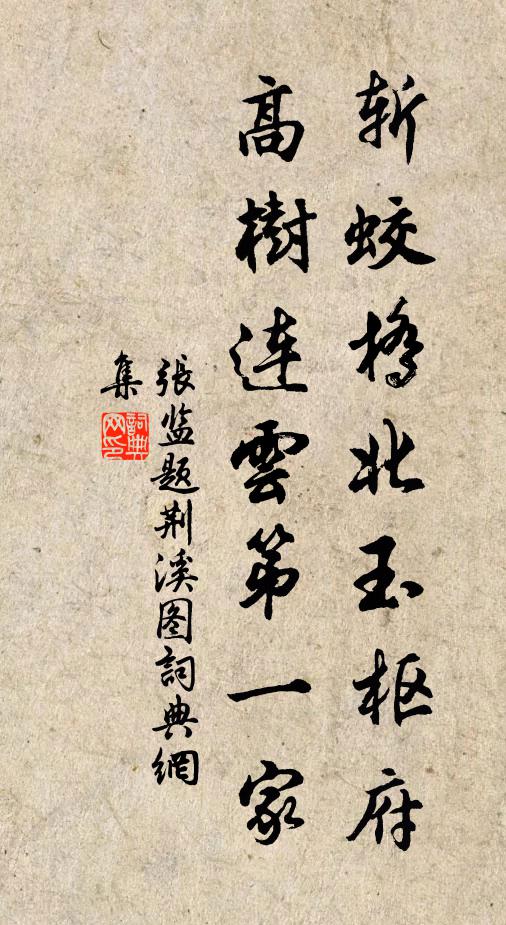 斩蛟桥北玉枢府
高樹连雲第一家
張监题荆溪图詞典網
集
詞典網印